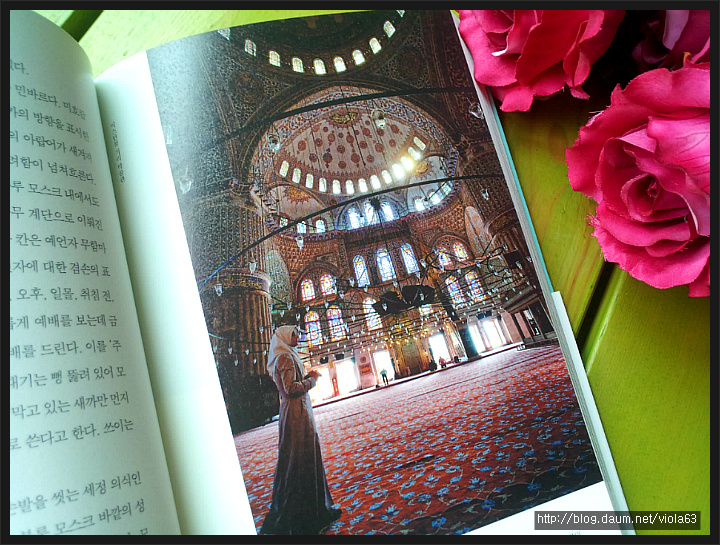 있다.
민바르다. 미흐랍
방향을 표시한
의 아랍어가 새겨져
려함이 넘쳐흐른다.
루 모스크 내에서도
무 계단으로 이뤄진
칸은 예언자 무함마
자에 대한 겸손의 표
오후, 일몰, 취침 전,
게 예배를 보는데 금
배를 드린다. 이를 '주
대기는 뻥 뚫려 있어 모
막고 있는 새까만 먼지
로 쓴다고 한다. 쓰이는
손발을 씻는 세정 의식인
블루 모스크 바깥의 성
http://blog.daum.net/viola63